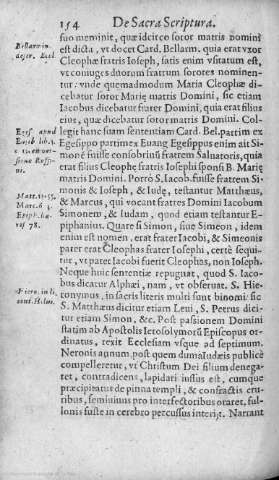 154 De Sacra Scriptura.
suo meminit, quæ idcirco soror matris domini
Bellarmin.
est dicta, vt docet Card. Bellarm. quia erat vxor
Cleophæ fratris Ioseph, satis enim vsitatum est,
vt coniuges duorum fratrum sorores nominen-
tur: vnde quemadmodum Maria Cleophæ di-
cebatur soror Mariæ matris Domini, sic etiam
Iacobus dicebatur frater Domini, quia erat filius
eius, quæ dicebatur soror matris Domini. Col-
legit hanc suam sententiam Card. Bel. partim ex
Egesippo partim ex Euang Egesippus enim ait Si-
monē fuisse consobrinū fratrem Saluatoris, quia
erat filius Cleophæ fratris Iosephi sponsi B. Mariæ
matris Domini. Porrò S. Iacob. fuisse fratrem Si-
Matt. 13. 55.
monis & Ioseph, & Iudę, testantur Matthæus,
Marc. 6.
& Marcus, qui vocant fratres Domini Iacobum
Simonem, & Iudam, quod etiam testantur E-
piphanius. Quare si Simon, siue Simeon, idem
enim est nomen, erat frater Iacobi, & Simeonis
pater erat Cleophas frater Iosephi, certè sequi-
tur, vt pater Iacobi fuerit Cleophas, non Ioseph.
Neque huic sententiæ repugnat, quod S. Iaco-
bus dicatur Alphæi, nam, vt obseruat S. Hie-
ronymus, in sacris literis multi sunt binomi: sic
S. Matthæus dicitur etiam Leui, S. Petrus dici-
tur etiam Simon, &c. Post passionem Domini
statim ab Apostolis Ierosolymorū Episcopus or-
dinatus, rexit Ecclesiam vsque ad septimum.
Neronis annum post quem dum a Iudæis publicè
compelleretur, vt Christum Dei filium denega-
ret, contradicens, lapidari iussus est, cumque
præcipitatus de pinna templi, & confractis cru-
ribus, semiuiuus pro interfectoribus oraret, ful-
lonis fuste in cerebro percussus interijt. Narrant